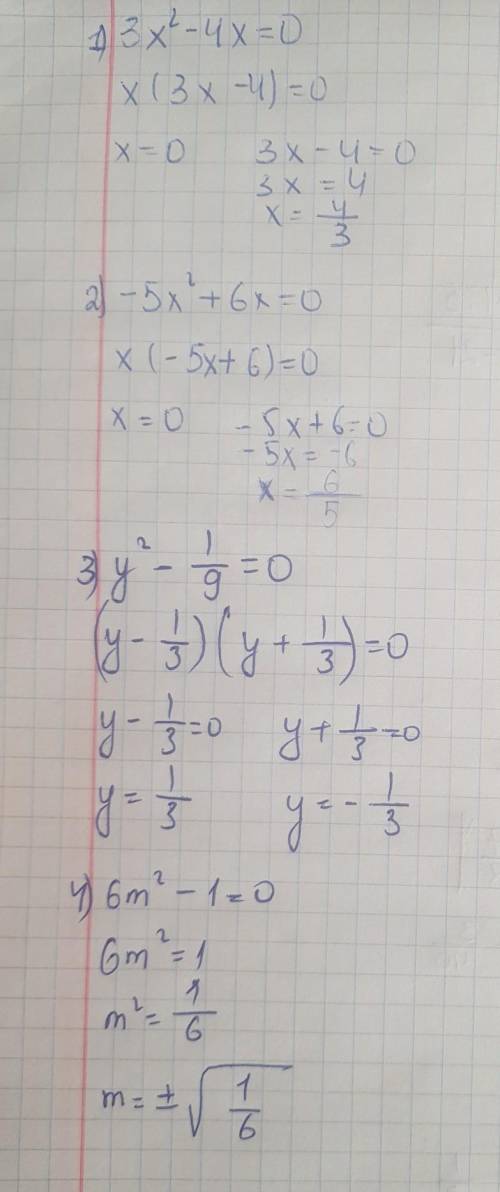 1) 3x² - 4x = 0
x(3x - 4) = 0
x = 0    3x - 4 = 0
3x = 4
x = 4/3
2) -5x² + 6x = 0
x(-5x + 6) = 0
x = 0    -5x + 6 = 0
-5x = -6
x = 6/5
3) y² - 1/9 = 0
(y - 1/3)(y + 1/3) = 0
y - 1/3 = 0    y + 1/3 = 0
y = 1/3    y = -1/3
4) 6m² - 1 = 0
6m² = 1
m² = 1/6
m = ±√(1/6)